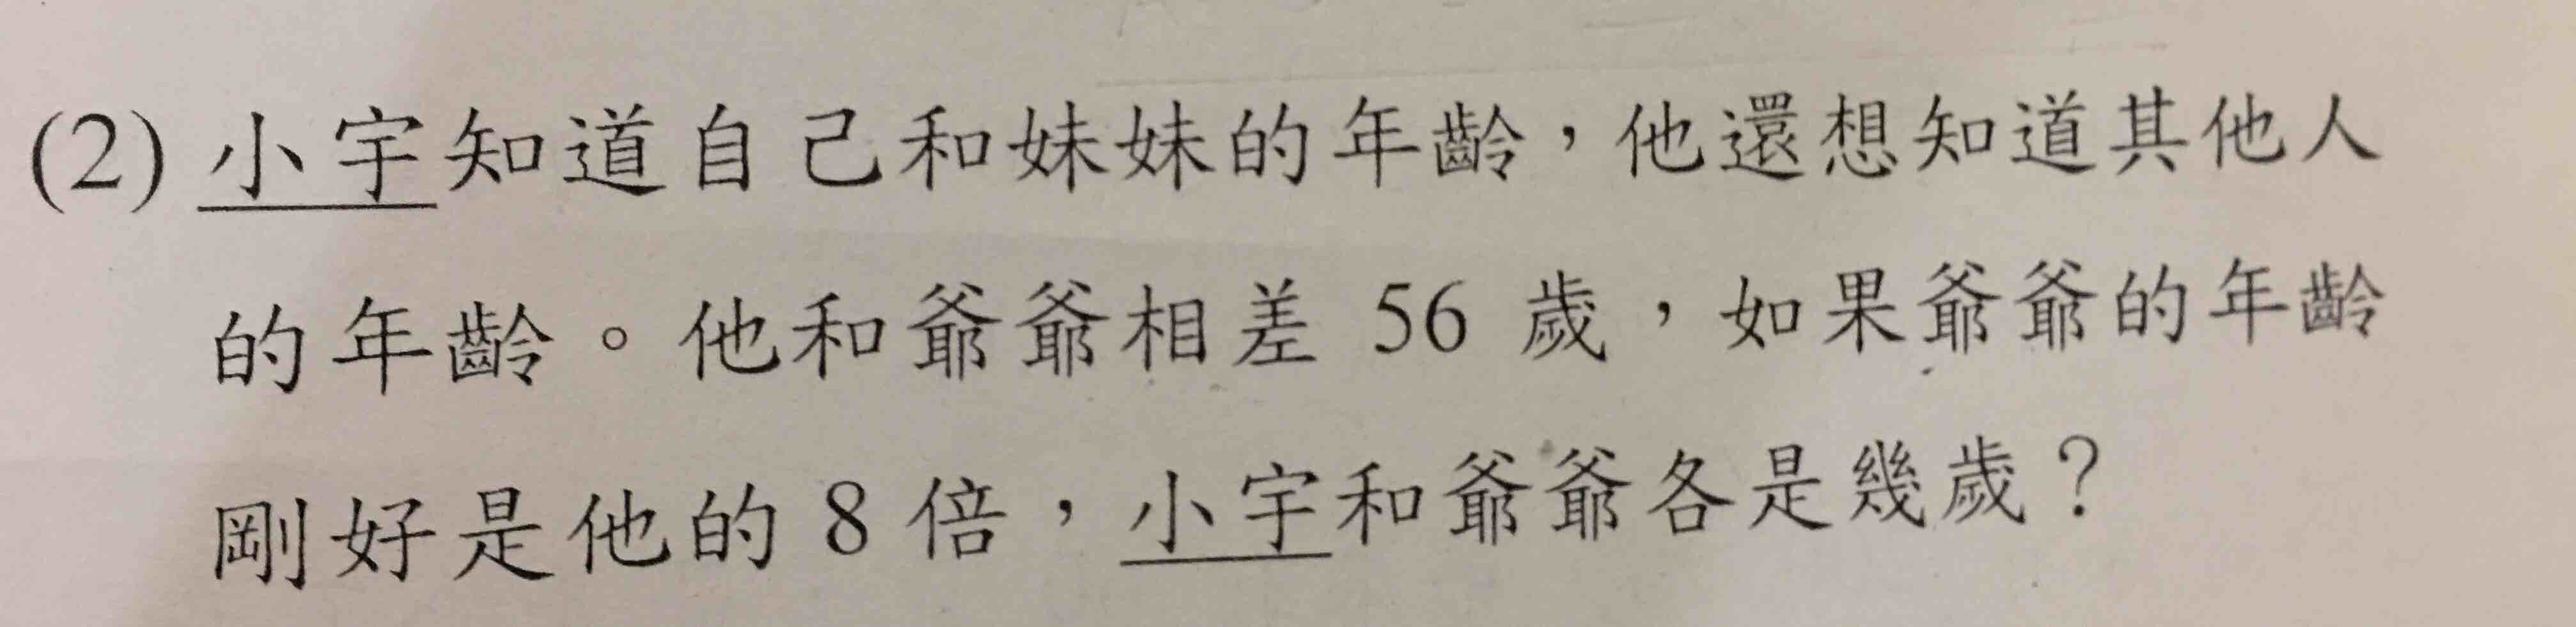 (2) 小宇知道自己和妹妹的年齡，他還想知道其他人
的年齡。他和爺爺相差 56 歲，如果爺爺的年齡
剛好是他的 8 倍，小宇和爺爺各是幾歲？